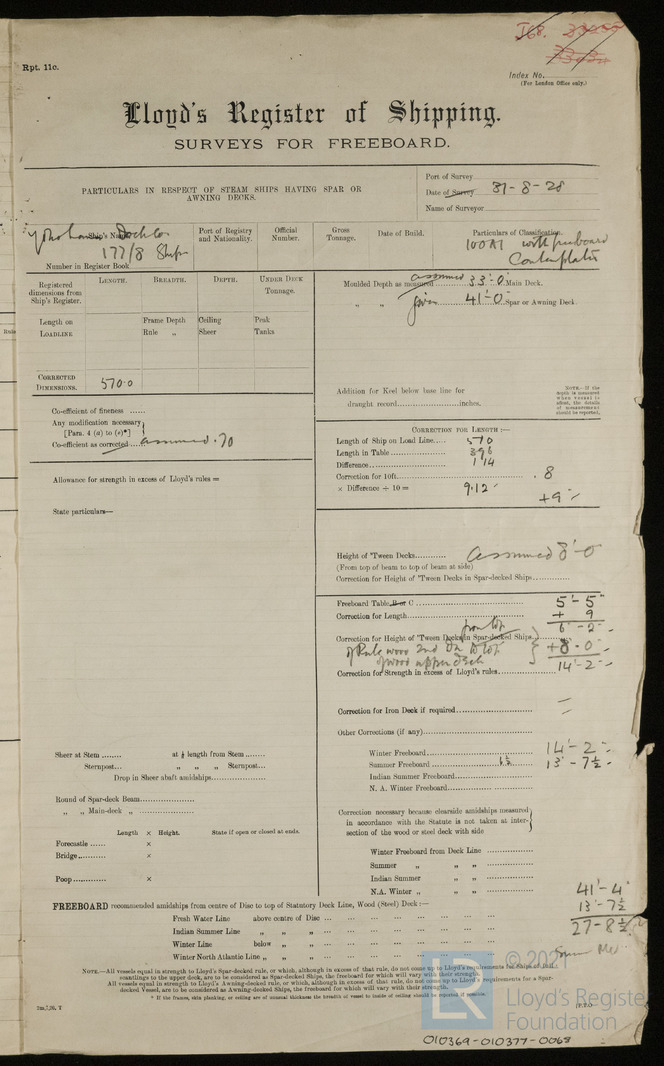 Rpt. 11c.
I68.
Index No.
(For London Office only.)
Lloyd's Register of Shipping.
SURVEYS FOR FREEBOARD.
PARTICULARS IN RESPECT OF STEAM SHIPS HAVING SPAR OR
AWNING DECKS.
Port of Survey
Date of Survey 31-8-28
Name of Surveyor
Ship's Name
Yokohama Dock Co
177/8 Ships
Number in Register Book
Port of Registry
and Nationality.
Official
Number.
Gross
Tonnage.
Date of Build.
Particulars of Classification.
100A1 with freeboard
Contemplates
Registered
dimensions from
Ship's Register.
LENGTH.
BREADTH.
DEPTH.
UNDER DECK
TONNAGE.
Length on
LOADLINE
Frame Depth
Rule „
Ceiling
Sheer
Peak
Tanks
CORRECTED
DIMENSIONS.
570.0
Moulded Depth as measured assumed 33'.0 Main Deck.
„ „ given 41'-0 Spar or Awning Deck
Addition for Keel below base line for
draught record............inches.
NOTE.—If the
depth is measured
when vessel is
afloat, the details
of measurement
should be reported.
Co-efficient of fineness ......
Any modification necessary
[Para. 4 (a) to (e)*]
Co-efficient as corrected assumed .70
Allowance for strength in excess of Lloyd's rules =
State particulars—
CORRECTION FOR LENGTH :—
Length of Ship on Load Line.... 570
Length in Table 396
Difference 114
Correction for 10ft. .8
× Difference ÷ 10 = 9.12
+9
Height of 'Tween Decks assumed 8'-0
(From top of beam to top of beam at side)
Correction for Height of 'Tween Decks in Spar-decked Ships
Freeboard Table B or C 5'-5"
Correction for Length + 9
6'-2"
Correction for Height of 'Tween Decks in Spar-decked Ships from top
of Rule wood 2nd Dk to top
of wood upper deck
+8.0
14'-2"
Correction for Strength in excess of Lloyd's rules
Correction for Iron Deck if required
Other Corrections (if any)
Winter Freeboard 14'-2"
Summer Freeboard 6½ 13'-7½
Indian Summer Freeboard
N. A. Winter Freeboard
Sheer at Stem ........ at ⅛ length from Stem
Sternpost... „ „ „ Sternpost...
Drop in Sheer abaft amidships
Round of Spar-deck Beam
„ „ Main-deck „
Length × Height. State if open or closed at ends.
Forecastle ...... ×
Bridge ×
Poop ×
Correction necessary because clearside amidships measured
in accordance with the Statute is not taken at inter-
section of the wood or steel deck with side
Winter Freeboard from Deck Line
Summer „ „ „
Indian Summer „ „ „
N.A. Winter „ „ „
41'-4"
13'-7½
27-8½
FREEBOARD recommended amidships from centre of Disc to top of Statutory Deck Line, Wood (Steel) Deck :—
Fresh Water Line above centre of Disc
Indian Summer Line „ „ „
Winter Line below „ „
Winter North Atlantic Line „ „ „
NOTE.—All vessels equal in strength to Lloyd's Spar-decked rule, or which, although in excess of that rule, do not come up to Lloyd's requirements for Ships of full
scantlings to the upper deck, are to be considered as Spar-decked Ships, the freeboard for which will vary with their strength.
All vessels equal in strength to Lloyd's Awning-decked rule, or which, although in excess of that rule, do not come up to Lloyd's requirements for a Spar-
decked Vessel, are to be considered as Awning-decked Ships, the freeboard for which will vary with their strength.
* If the frames, skin planking, or ceiling are of unusual thickness the breadth of vessel to inside of ceiling should be reported if possible.
LR
Lloyd's Register
Foundation
010369-010377-0068